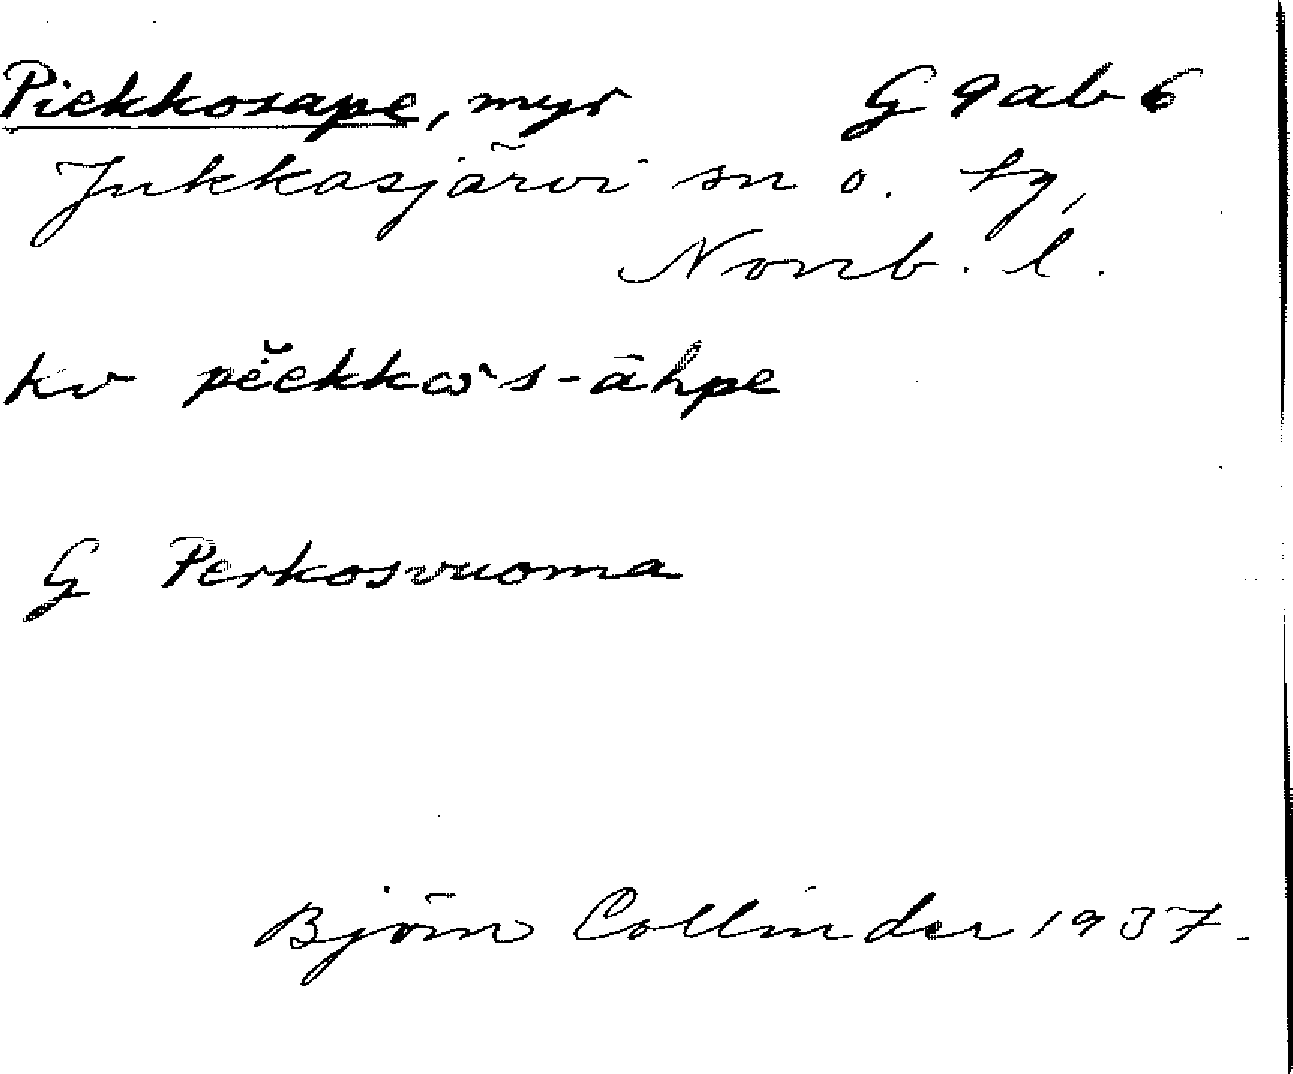 Piekkosape, myr G 9 a b 6
Jukkasjärvi sn o. tg,
Norrb. l.
kv pěekkɷ̀s-āhpe
G Perkosvuoma
Björn Collinder 1937.